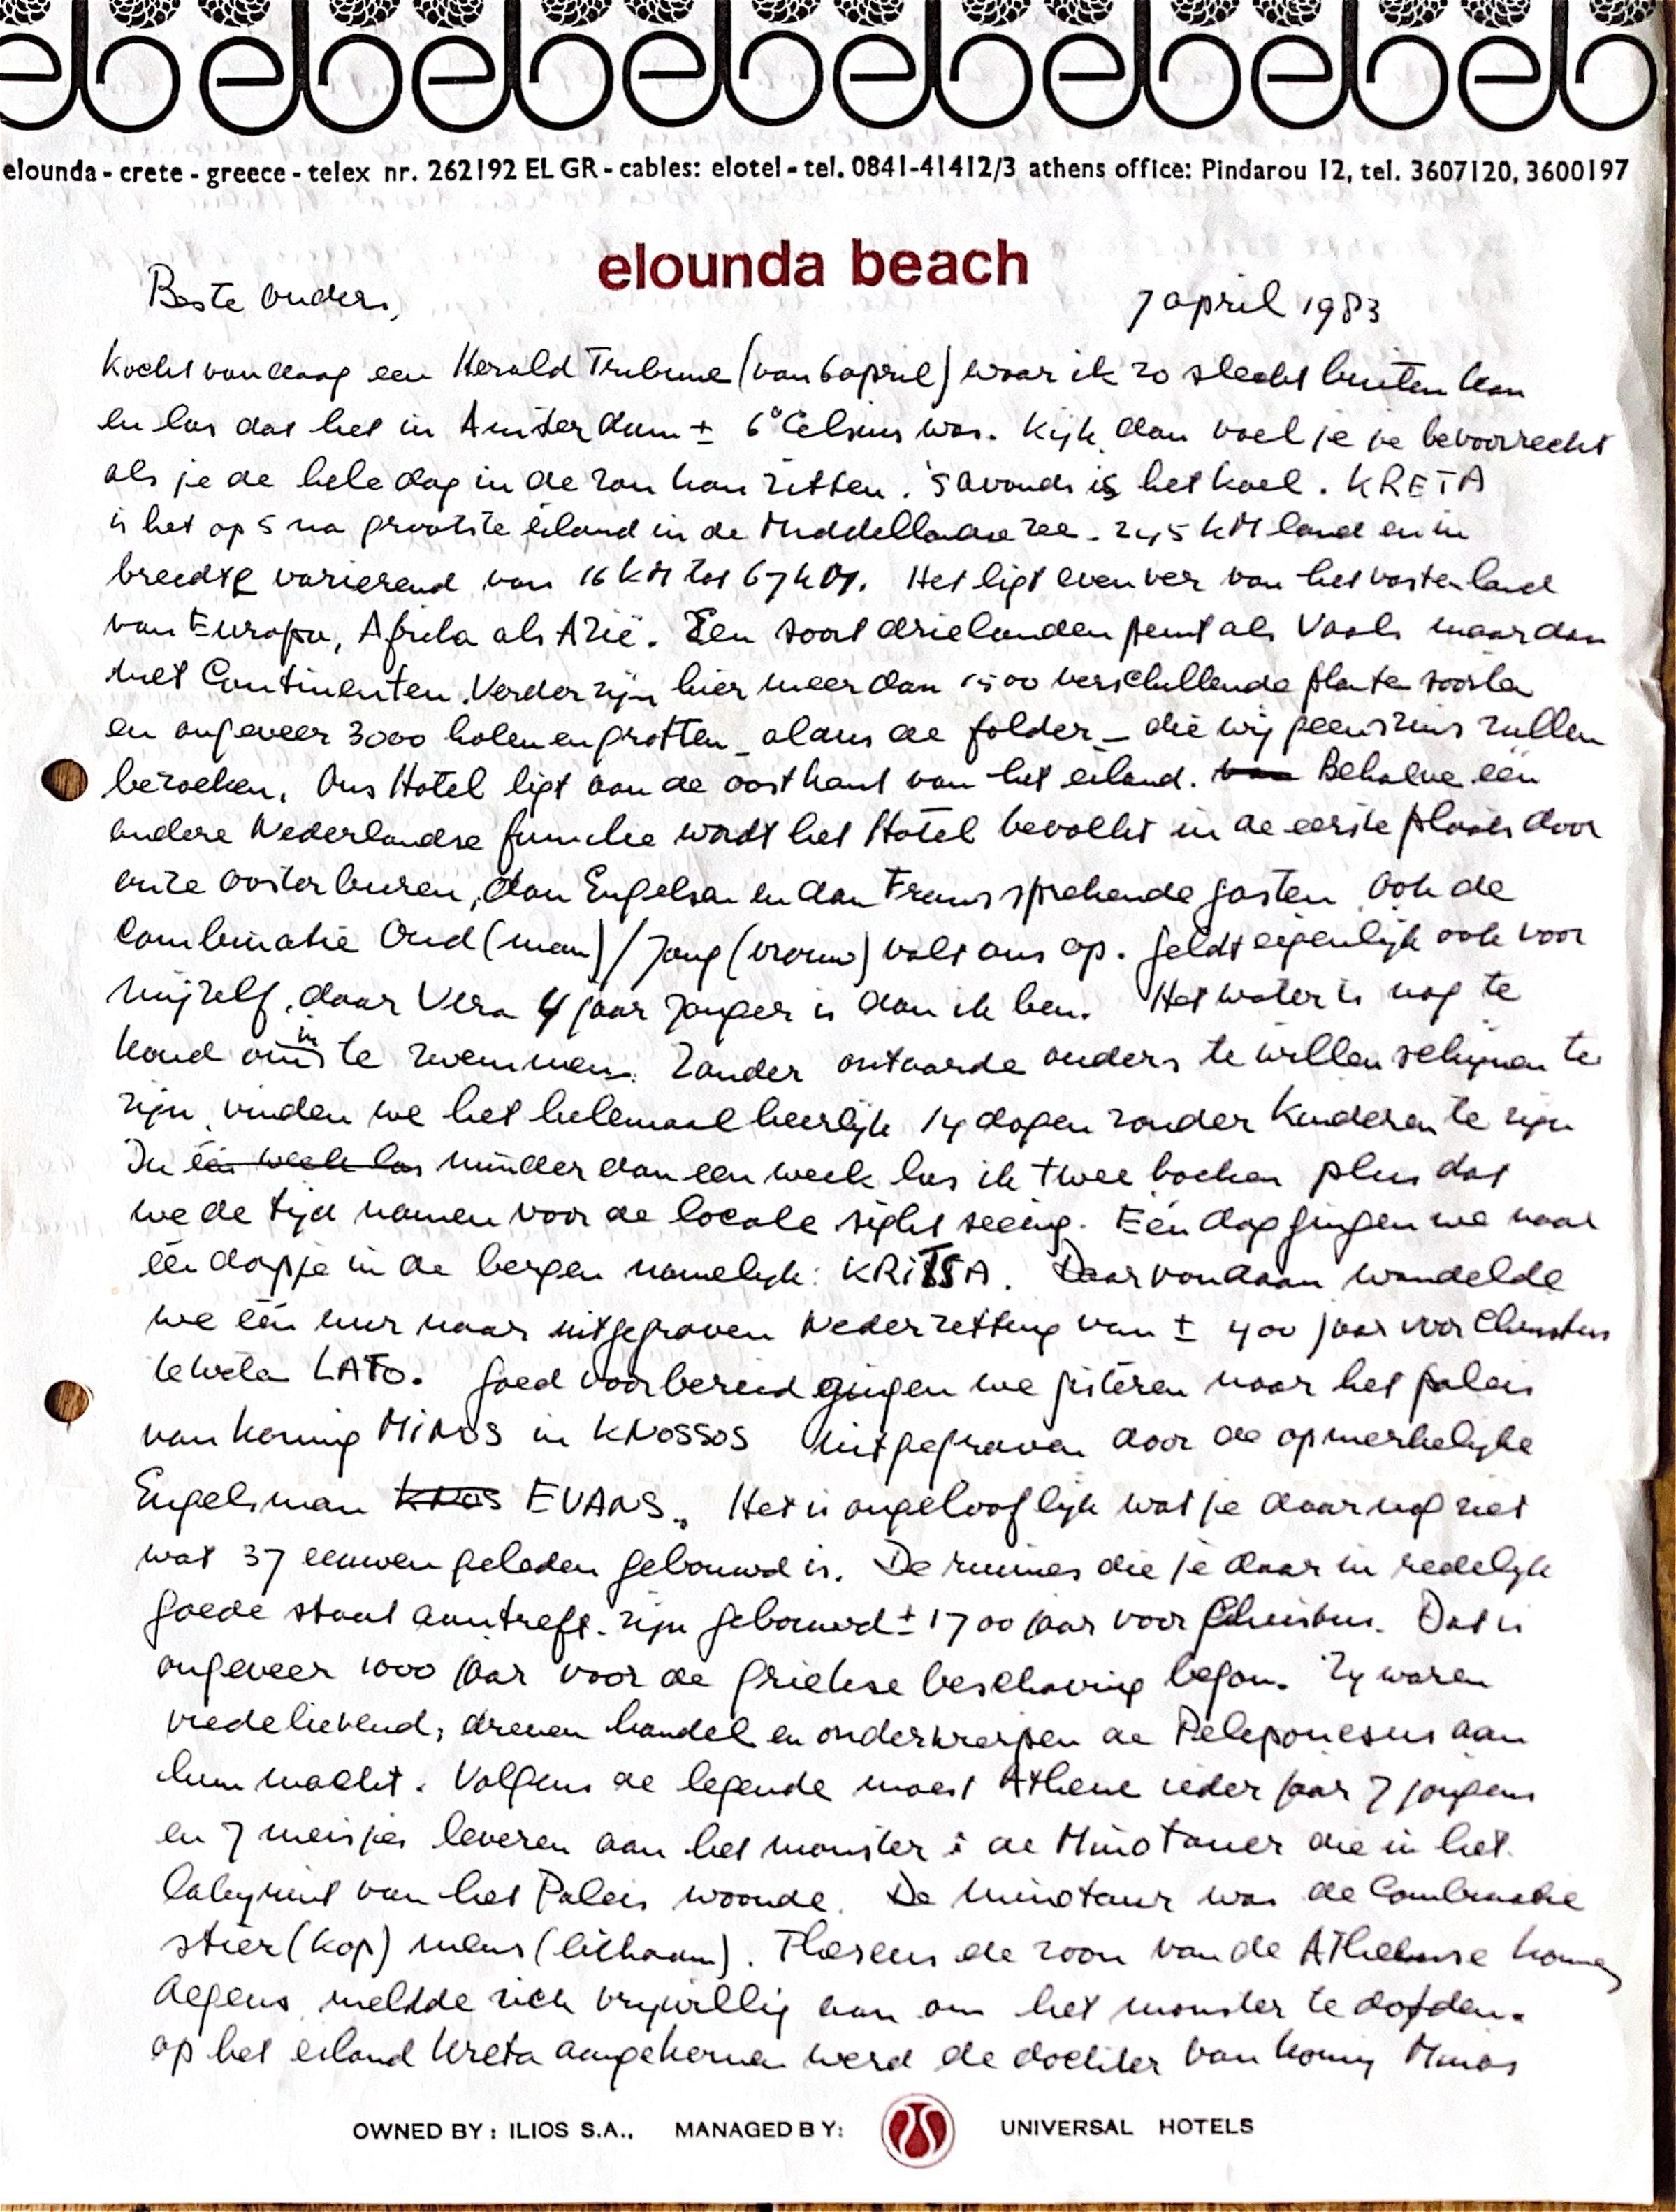 elounda - crete - greece - telex nr. 262192 EL GR - cables: elotel - tel. 0841-41412/3 athens office: Pindarou 12, tel. 3607120, 3600197
elounda beach
Beste Ouders,
7 april 1983
Kocht vandaag een Herald Tribune (van 6 april) waar ik zo slecht buiten kan
en las dat het in Amsterdam ± 6° Celsius was. Kijk, dan voel je je bevoorrecht
als je de hele dag in de zon kan zitten. 's avonds is het koel. KRETA
is het op 5 na grootste eiland in de Middellandse zee - 245 KM land en in
breedte varierend van 16 KM tot 67 KM. Het ligt even ver van het vasteland
van Europa, Afrika als Azië. Een soort drielandenpunt als Vaals maar dan
met Continenten. Verder zijn hier meer dan 1500 verschillende plante soorten
en ongeveer 3000 holen en grotten - aldus de folder - die wij geenszins zullen
bezoeken. Ons Hotel ligt aan de oostkant van het eiland. Behalve een
andere Nederlandse familie wordt het Hotel bevolkt in de eerste plaats door
onze oosterburen, dan Engelsen en dan Frans sprekende gasten. Ook de
Combinatie Oud (man) / Jong (vrouw) valt ons op. Geldt eigenlijk ook voor
mijzelf, daar Vera 4 jaar jonger is dan ik ben. Het water is nog te
koud om in te zwemmen. Zonder ontaarde ouders te willen schijnen te
zijn, vinden we het helemaal heerlijk 14 dagen zonder Kinderen te zijn
In één week las minder dan een week las ik twee boeken plus dat
we de tijd namen voor de locale sight seeing. Eén dag gingen we naar
één dorpje in de bergen namelijk: KRITSA. Daarvandaan wandelde
we één uur naar uitgegraven Nederzetting van ± 400 jaar voor Christus
te weten LATO. Goed voorbereid gingen we gisteren naar het paleis
van Koning MINOS in KNOSSOS uitgegraven door de opmerkelijke
Engelsman KNOS EVANS. Het is ongelooflijk wat je daar nog ziet
wat 37 eeuwen geleden gebouwd is. De ruines die je daar in redelijk
goede staat aantreft zijn gebouwd ± 1700 jaar voor Christus. Dat is
ongeveer 1000 jaar voor de griekse beschaving begon. Zij waren
vredelievend, dreven handel en onderwerpen de Peleponesus aan
hun macht. Volgens de legende moest Athene ieder jaar 7 jongens
en 7 meisjes leveren aan het monster: de Minotauer die in het
labyrint van het Paleis woonde. De Minotaur was de Combinatie
stier (kop) mens (lichaam). Theseus de zoon van de Atheense koning
Aegeus, meldde zich vrijwillig aan om het monster te doden.
op het eiland Kreta aangekomen werd de dochter van koning Minos
OWNED BY: ILIOS S.A., MANAGED BY: UNIVERSAL HOTELS